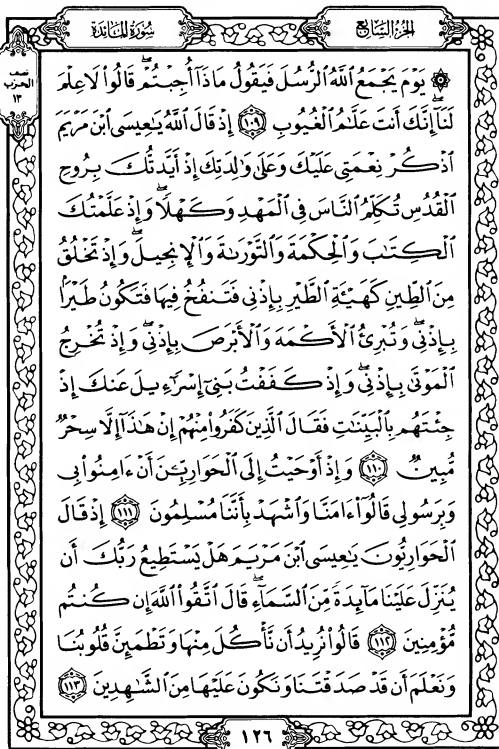 الجزء السابع
سورة المائدة
نصف
الحزب
١٣
۞ يَوۡمَ يَجۡمَعُ ٱللَّهُ ٱلرُّسُلَ فَيَقُولُ مَاذَآ أُجِبۡتُمۡۖ قَالُواْ لَا عِلۡمَ
لَنَآۖ إِنَّكَ أَنتَ عَلَّٰمُ ٱلۡغُيُوبِ ١٠٩ إِذۡ قَالَ ٱللَّهُ يَٰعِيسَى ٱبۡنَ مَرۡيَمَ
ٱذۡكُرۡ نِعۡمَتِي عَلَيۡكَ وَعَلَىٰ وَٰلِدَتِكَ إِذۡ أَيَّدتُّكَ بِرُوحِ
ٱلۡقُدُسِ تُكَلِّمُ ٱلنَّاسَ فِي ٱلۡمَهۡدِ وَكَهۡلٗاۖ وَإِذۡ عَلَّمۡتُكَ
ٱلۡكِتَٰبَ وَٱلۡحِكۡمَةَ وَٱلتَّوۡرَىٰةَ وَٱلۡإِنجِيلَۖ وَإِذۡ تَخۡلُقُ
مِنَ ٱلطِّينِ كَهَيۡـَٔةِ ٱلطَّيۡرِ بِإِذۡنِي فَتَنفُخُ فِيهَا فَتَكُونُ طَيۡرَۢا
بِإِذۡنِيۖ وَتُبۡرِئُ ٱلۡأَكۡمَهَ وَٱلۡأَبۡرَصَ بِإِذۡنِيۖ وَإِذۡ تُخۡرِجُ
ٱلۡمَوۡتَىٰ بِإِذۡنِيۖ وَإِذۡ كَفَفۡتُ بَنِيٓ إِسۡرَٰٓءِيلَ عَنكَ إِذۡ
جِئۡتَهُم بِٱلۡبَيِّنَٰتِ فَقَالَ ٱلَّذِينَ كَفَرُواْ مِنۡهُمۡ إِنۡ هَٰذَآ إِلَّا سِحۡرٞ
مُّبِينٞ ١١٠ وَإِذۡ أَوۡحَيۡتُ إِلَى ٱلۡحَوَارِيِّـۧنَ أَنۡ ءَامِنُواْ بِي
وَبِرَسُولِي قَالُوٓاْ ءَامَنَّا وَٱشۡهَدۡ بِأَنَّنَا مُسۡلِمُونَ ١١١ إِذۡ قَالَ
ٱلۡحَوَارِيُّونَ يَٰعِيسَى ٱبۡنَ مَرۡيَمَ هَلۡ يَسۡتَطِيعُ رَبُّكَ أَن
يُنَزِّلَ عَلَيۡنَا مَآئِدَةٗ مِّنَ ٱلسَّمَآءِۖ قَالَ ٱتَّقُواْ ٱللَّهَ إِن كُنتُم
مُّؤۡمِنِينَ ١١٢ قَالُواْ نُرِيدُ أَن نَّأۡكُلَ مِنۡهَا وَتَطۡمَئِنَّ قُلُوبُنَا
وَنَعۡلَمَ أَن قَدۡ صَدَقۡتَنَا وَنَكُونَ عَلَيۡهَا مِنَ ٱلشَّٰهِدِينَ ١١٣
١٢٦